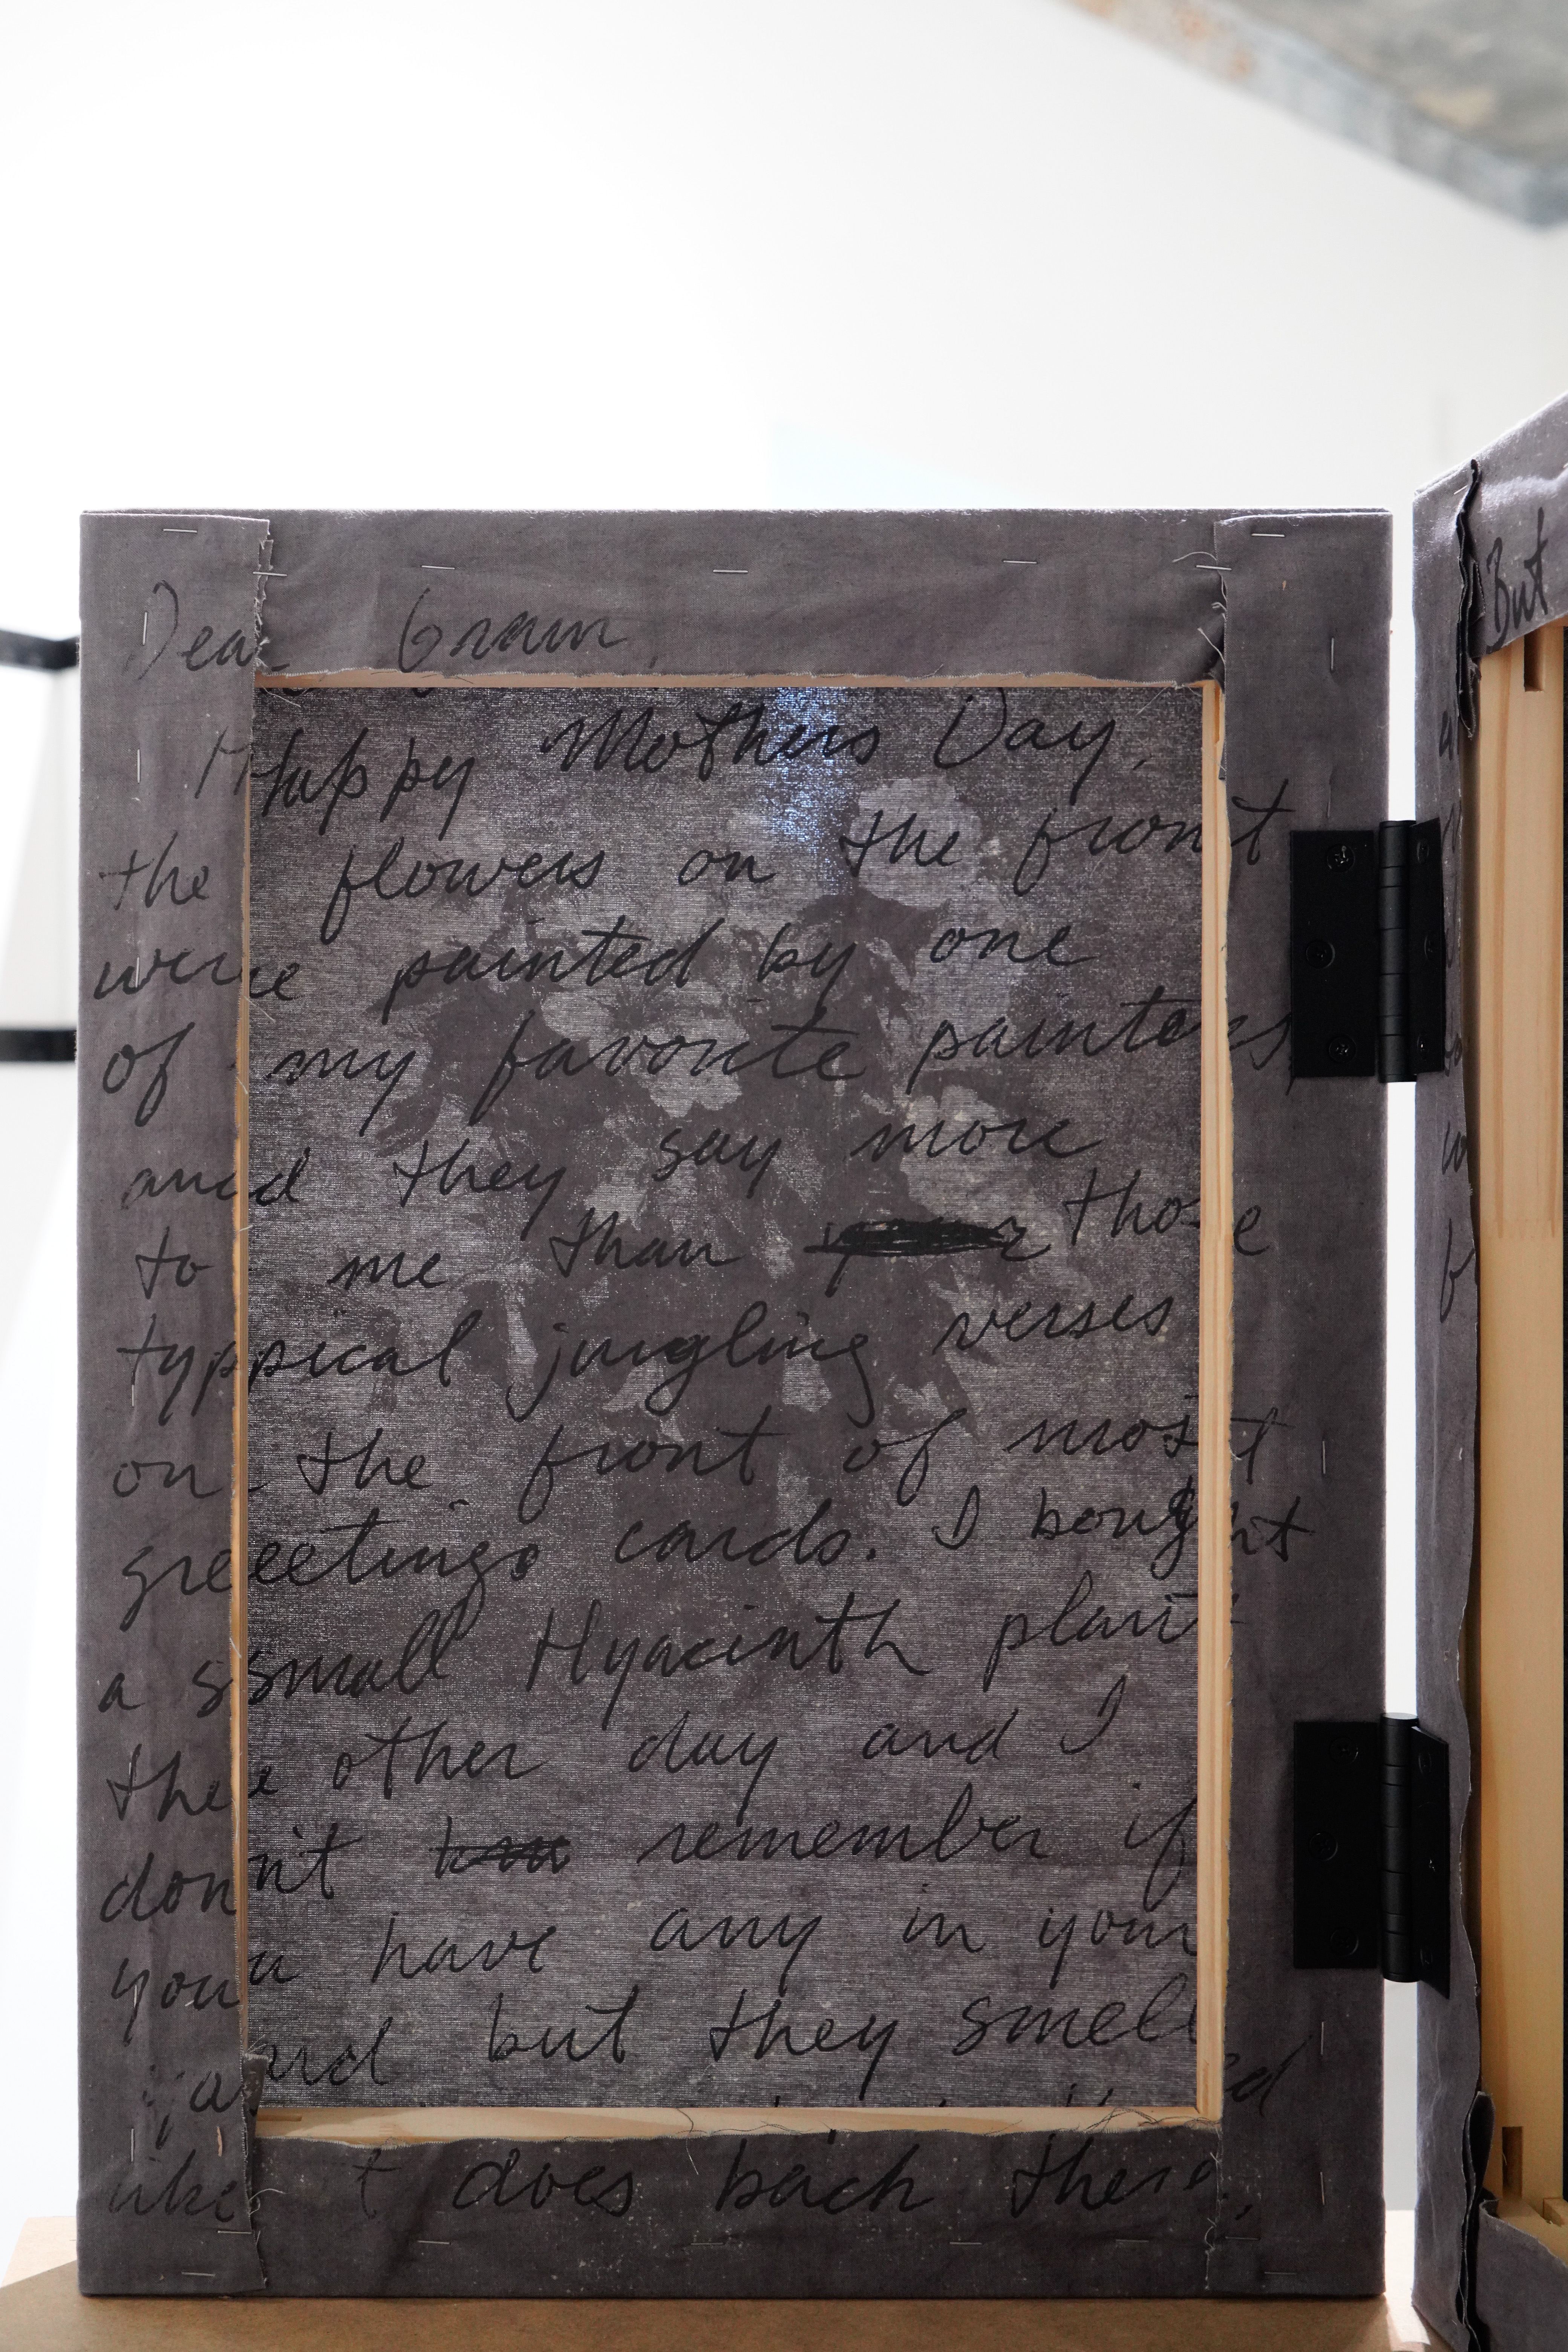 Dear Gram,
Happy Mothers Day,
the flowers on the front
were painted by one
of my favorite painters
and they say more
to me than those
typical jingling verses
on the front of most
greetings cards. I bought
a small Hyacinth plant
the other day and I
don't remember if
you have any in your
yard but they smell
like does back there,
But